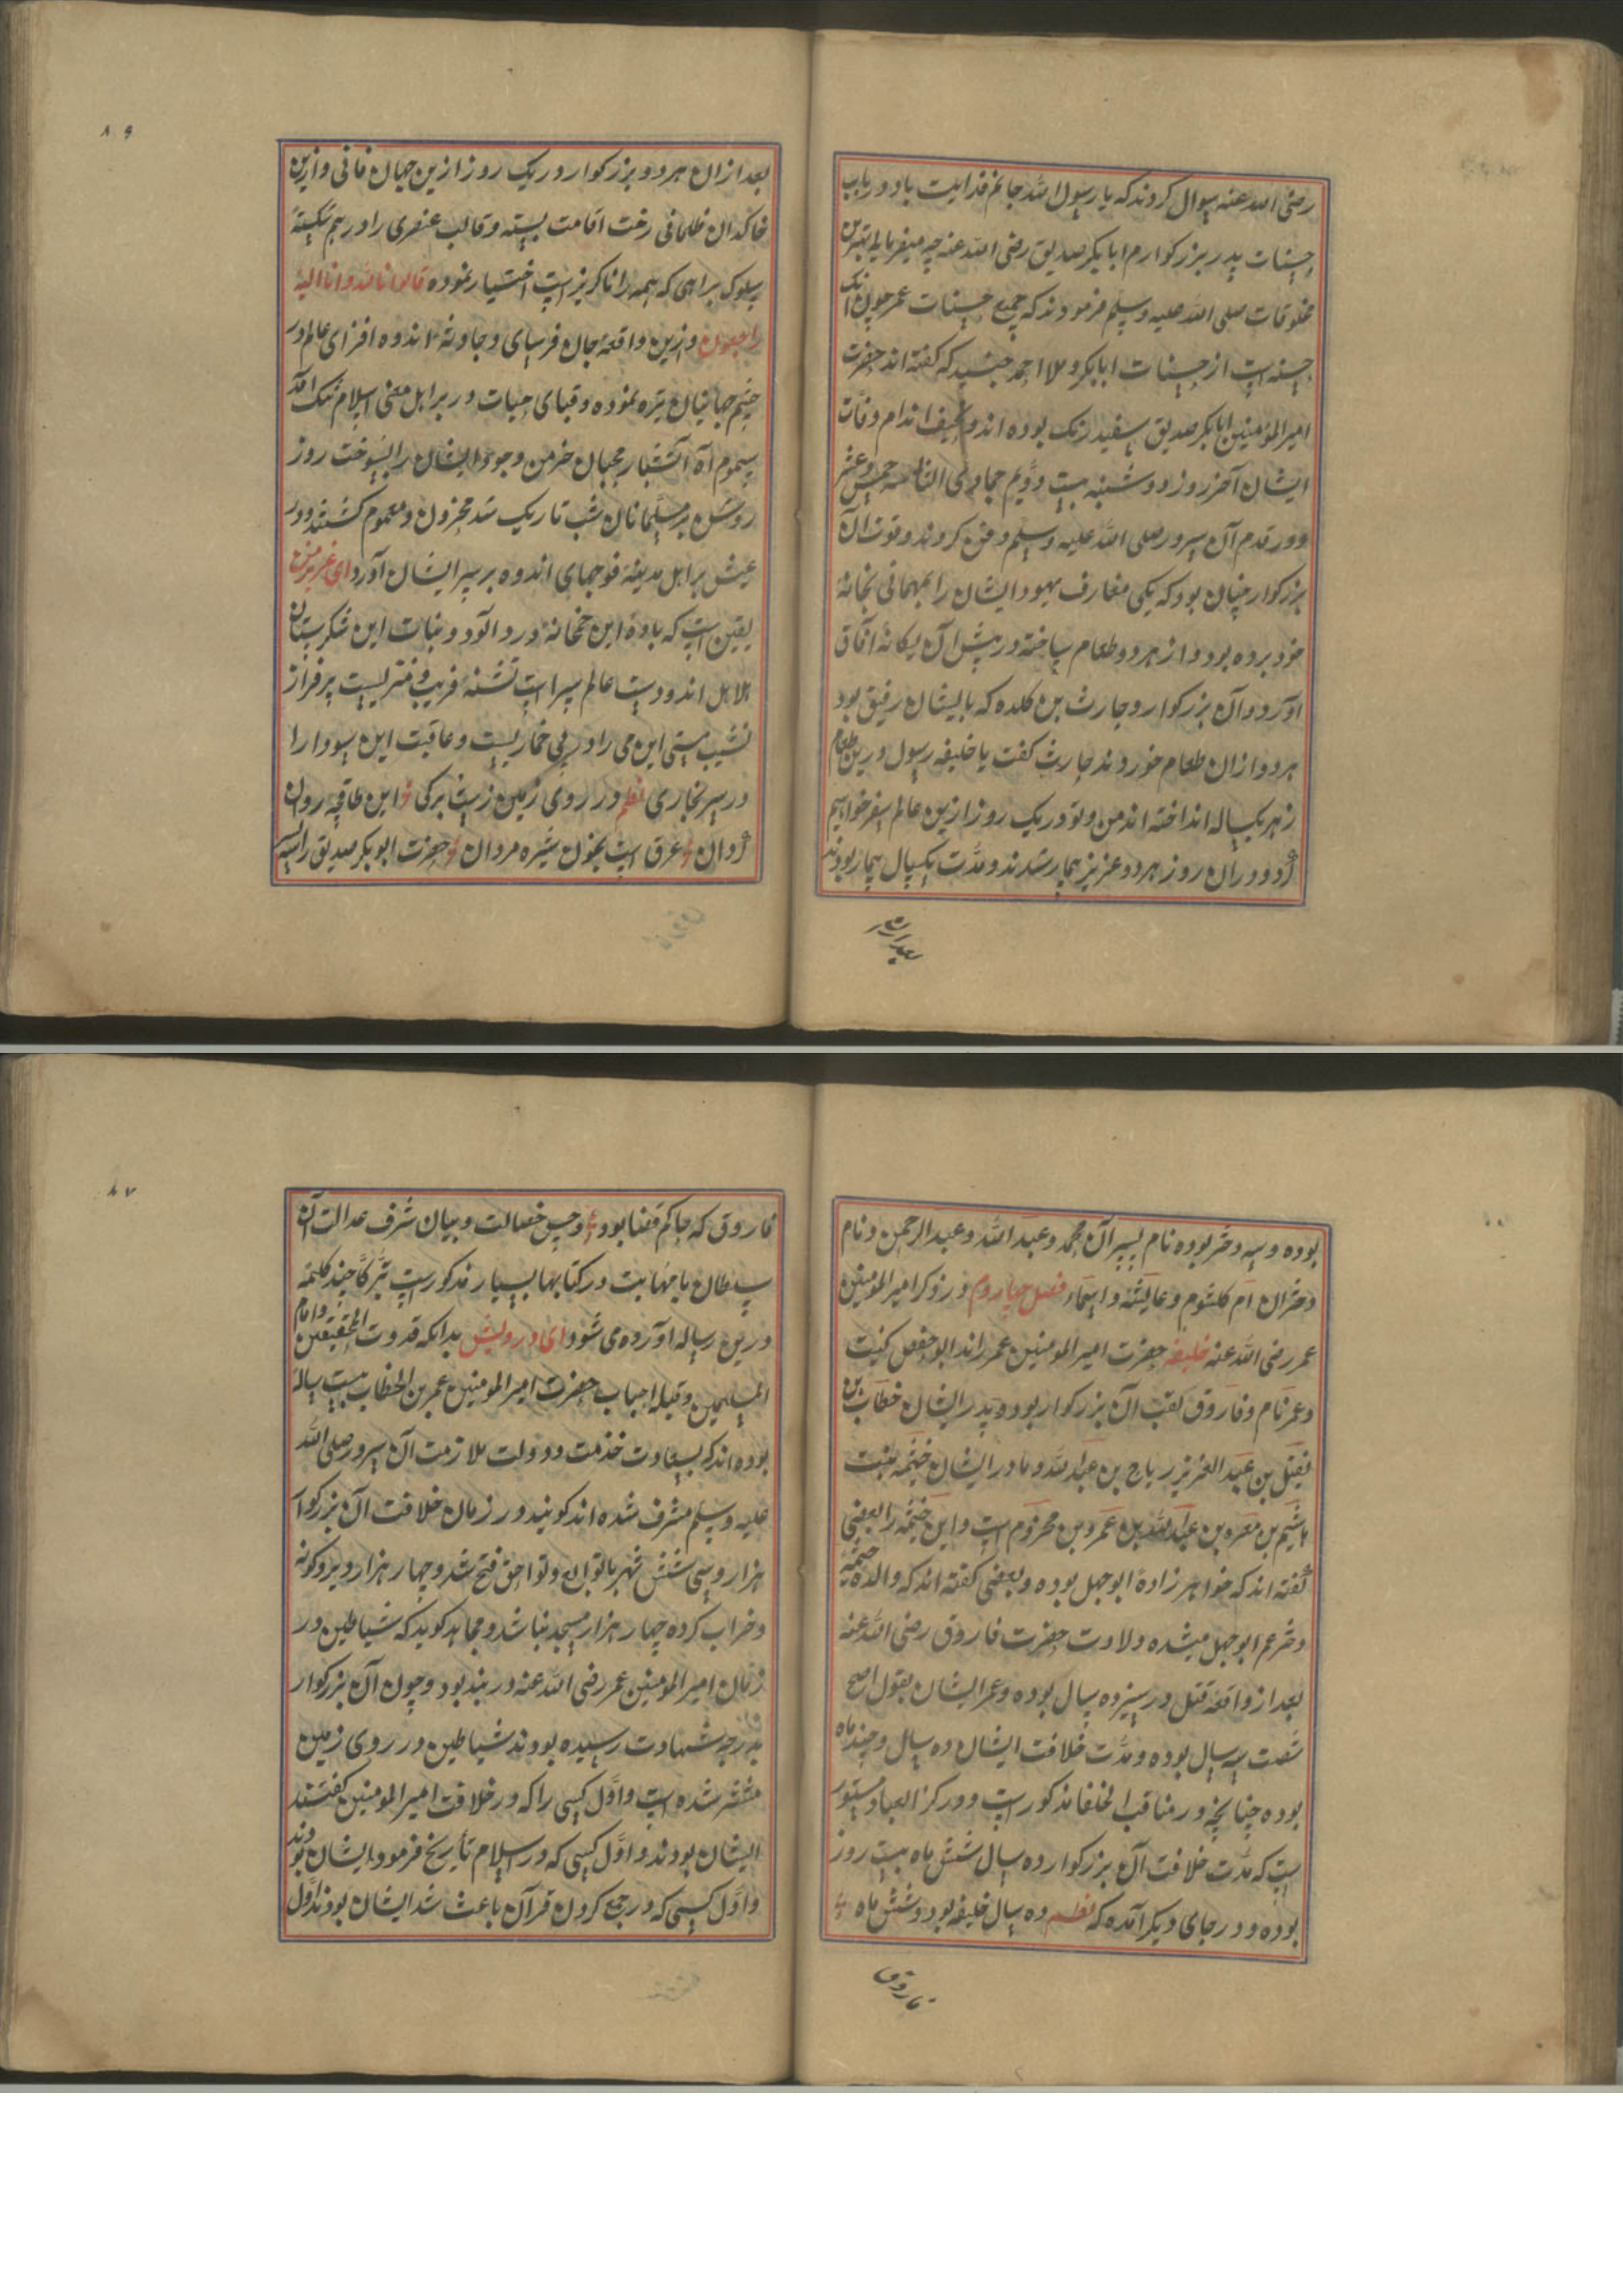 رضی الله عنه سوال کردند که یا رسول الله جانم فدایت باد در باب
حسنات پدر بزرکوارم ابابکر صدیق رضی الله عنه چه میفرمایید بهترین
مخلوقات صلی الله علیه وسلم فرمودند که جمیع حسنات عمر چون یک
حسنه است از حسنات ابابکر و ملا احمد جنید که کفته اند حضرت
امیرالمؤمنین ابابکر صدیق سفید رنک بوده اند و نحیف اندام وفات
ایشان آخر روز دوشنبه بیست و دویم جمادی الثا سنه خمس و عشر
و در قدم آن سرور صلی الله علیه وسلم دفن کردند و فوت آن
بزرکوار چنان بود که یکی معارف یهود ایشان را بمهمانی بخانهٔ
خود برده بود و از هر دو طعام ساخته در پیش آن یکانهٔ آفاق
آورد و آن بزرکوار و حارث بن کلده که بایشان رفیق بود
هر دو ازان طعام خوردند حارث کفت یا خلیفه رسول درین طعام
زهر یکساله انداخته اند من و تو در یک روز ازین عالم سفر خواهیم
کرد و در ان روز هر دو عزیز بیمار شدند و مدّت یکسال بیمار بودند
بعد ازان
۸۶
بعد ازان هر دو بزرکوار در یک روز ازین جهان فانی و ازین
خاکدان ظلمانی رخت اقامت بسته و قالب عنصری را در هم شکسته
سلوک براهی که همه را ناکریز است اختیار نموده قالوا انا لله وانا الیه
راجعون و ازین واقعهٔ جان فرسای و حادثهٔ اندوه افزای عالم در
چشم جهانیان تیره نموده و قبای حیات در بر اهل معنی اسلام تنک آمد
سموم آه آتشبار محبان خرمن وجود ایشان را بسوخت روز
روشن بر مسلمانان شب تاریک شد محزون و مغموم کشتند و در
عیش بر اهل مدینه فوجهای اندوه بر سر ایشان آورد ای عزیز من
یقین است که بادهٔ این خمخانهٔ درد آلود و نبات این شکرستان
هلاهل اندودست عالم سراب تشنهٔ فریب و منزلیست پر فراز
نشیب مستی این می را در پی خماریست و عاقبت این سودا را
در سر بخاری نظم در روی زمین زیست برکی این طاقچه روان
کردان غرق است بخون شیره مردان حضرت ابو بکر صدیق را سه
بوده و سه دختر بوده نام پسر آن محمد و عبد الله و عبد الرحمن و نام
دختران ام کلثوم و عایشه و اسماء فصل چهاروم در ذکر امیر المؤمنین
عمر رضی الله عنه خلیفه حضرت امیر المومنین عمر راند ابو حفص کنیت
و عمر نام و فاروق لقب آن بزرکوار بود و پدر ایشان خطاب بن
نفیل بن عبد العزیز ریاح بن عبد الله و مادر ایشان ختمه بنت
هاشم بن مغره بن عبد الله بن عمرو بن مخزوم است و این ختمه را بعضی
کفته اند که خواهر زادهٔ ابو جهل بوده و بعضی کفته اند که والده ختمه
دختر عم ابو جهل میشده ولادت حضرت فاروق رضی الله عنه
بعد از واقعه فیل در سیزده سال بوده و عمر ایشان بقول اصح
شصت سه سال بوده و مدّت خلافت ایشان ده سال و چند ماه
بوده چنانچه در مناقب الخلفا مذکور است و در کنز العباد مستور
ست که مدّت خلافت آن بزرکوار ده سال شش ماه بیست روز
بوده و در جای دیکر آمده که نظم ده سال خلیفه بود و شش ماه
فاروق
۸۷
فاروق که حاکم قضا بود و حسن خصالت و بیان شرف عدالت آن
سلطان با مهابت در کتابها بسیار مذکور است تبرّکا چند کلمه
درین رساله آورده می شود ای درویش بدانکه قدوت المحققین و امام
المسلمین و قبله احباب حضرت امیر المومنین عمر بن الخطاب بیست ساله
بوده اند که بسعادت خدمت و دولت ملازمت آن سرور صلی الله
علیه وسلم مشرف شده اند کویند در زمان خلافت آن بزرکوار
هزار و سی شش شهر با توابع و لواحق فتح شد و چهار هزار دیر
و خراب کرده چهار هزار مسجد بنا شد و مجاهد کوید که شیاطین در
زمان امیر المومنین عمر رضی الله عنه در بند بود و چون آن بزرکوار
بدرجه شهادت رسیده بودند شیاطین در روی زمین
منتشر شده است و اوّل کسی را که در خلافت امیر المومنین کفتند
ایشان بودند و اوّل کسی که در اسلام تأریخ فرمود ایشان بودند
و اوّل کسی که در جمع کردن قرآن باعث شد ایشان بودند اوّل